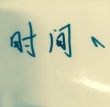 时间、